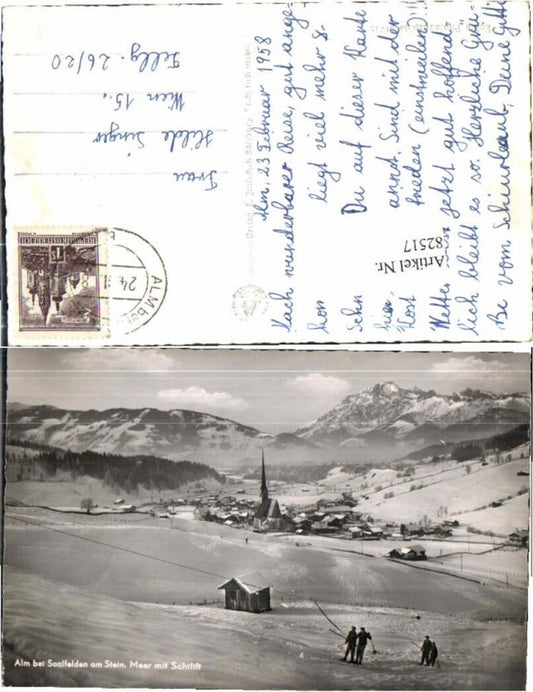 Alm. 23 Februar 1958
Nach wunderbarer Reise, gut ange-
liegt viel mehr S-
Du auf dieser Karte
annst. Sind mit der
Kost frieden (einstweilen)!!
Wetter jetzt gut hoffent-
lich bleibt es so. Herzliche Grü-
Be vom Deine Gitti
Frau
Hilde Singer
Wien 15.
Fellg. 26/20
REPUBLIK ÖSTERREICH
1S
24.II.
ALM bei
Artikel Nr.
82517
Alm bei Saalfelden am Stein. Meer mit Schilift